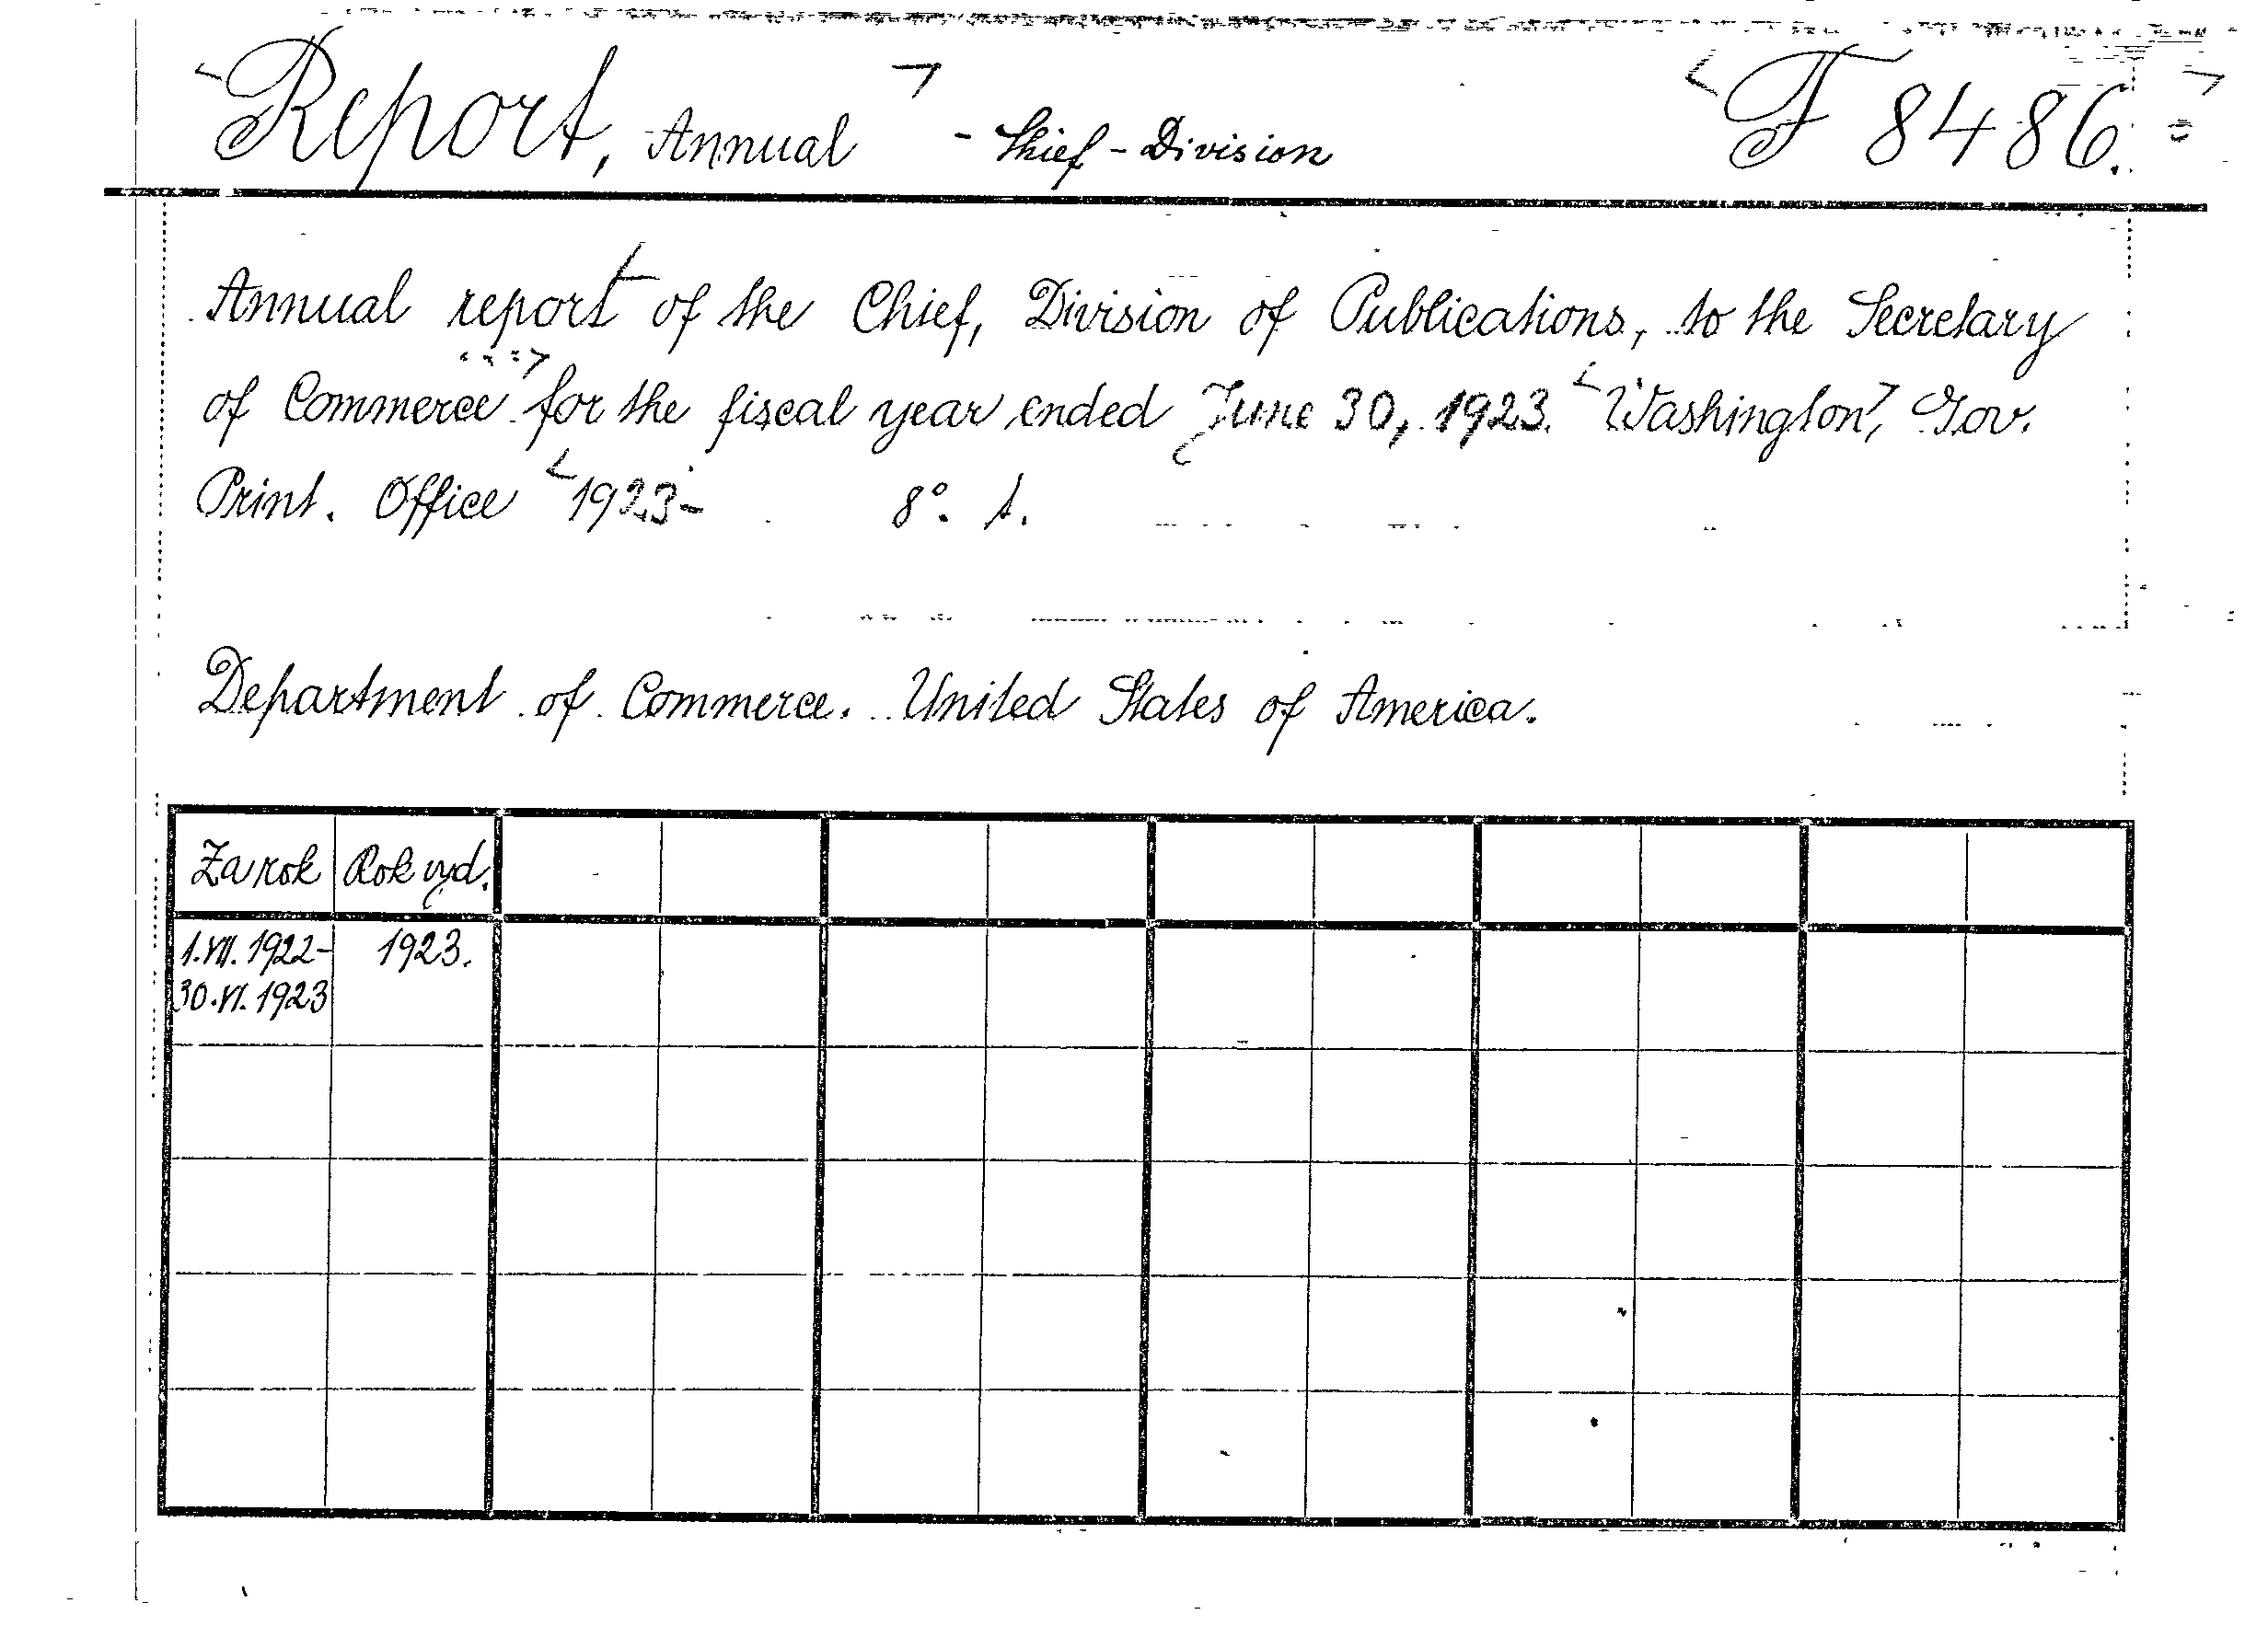 Report, Annual - Chief - Division F 8486.
Annual report of the Chief, Division of Publications, to the Secretary
of Commerce for the fiscal year ended June 30, 1923. Washington, Gov.
Print. Office 1923- 8°. A.
Department of Commerce. United States of America.
Za rok Rok vyd.
1.VII.1922- 1923.
30.VI.1923